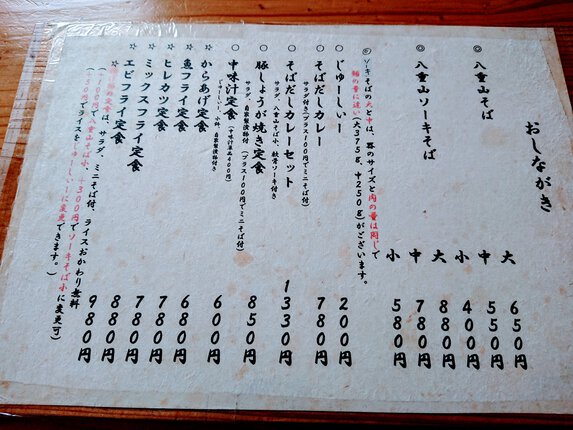 おしながき
◎八重山そば
大 650円
中 550円
小 400円
◎八重山ソーキそば
大 880円
中 780円
小 580円
◎ソーキそばの大と中は、器のサイズと肉の量は同じで
麺の量に違い(大375g、中250g)がございます。
○じゅーしぃー 200円
○そばだしカレー 780円
サラダ付き(プラス100円でミニそば付)
○そばだしカレーセット 1330円
サラダ、八重山そば小、軟骨ソーキ付き
○豚しょうが焼き定食 850円
サラダ、自家製漬物付 (プラス100円でミニそば付)
○中味汁定食 (中味汁単品400円) 600円
じゅーしぃー、小鉢、自家製漬物付き
☆からあげ定食 680円
☆魚フライ定食 780円
☆ヒレカツ定食 780円
☆ミックスフライ定食 880円
☆エビフライ定食 980円
の定食は、サラダ、ミニそば付、ライスおかわり無料
(+100円で八重山そば小、+300円でソーキそば小に変更可)
(+50円でライスをじゅーしぃーに変更できます。)